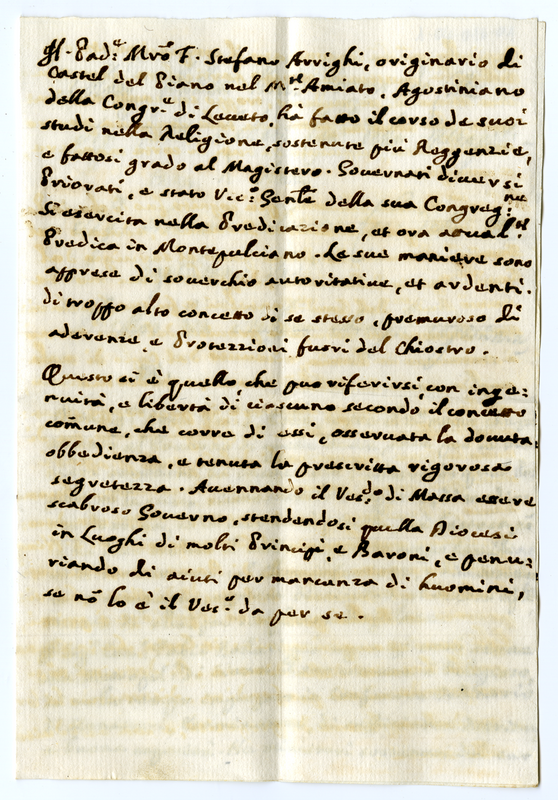 Il Pad.e Mro F. Stefano Arrighi, originario di
Castel del Piano nel M.te Amiato, Agostiniano
della Congr.e di Leceto, hà fatto il corso de suoi
studi nella Religione, sostenute più Reggenzie,
e fattosi grado al Magistero. Governati diversi
Priorati, e stato Vic.o Genle della sua Congreg.ne
Si esercita nella Predicazione, et ora actual.te
Predica in Montepulciano. Le sue maniere sono
apprese di soverchio autoritative, et ardenti.
di troppo alto concetto di se stesso, premuroso di
aderenze, e Protezzioni fuori del Chiostro.
Questo si è quello, che può riferirsi con inge-
nuità, e libertà di ciascuno secondo il concetto
comune, che corre di essi, osservata la dovuta
obbedienza, e tenuta la prescritta rigorosa
segretezza. Avennando il Ves.do di Massa essere
scabroso Governo, stendendosi quella Diocesi
in Luoghi di molti Principi, e Baroni, e penu-
riando di aiuti per mancanza di huomini,
se nõ lo è il Ves.o da per se.